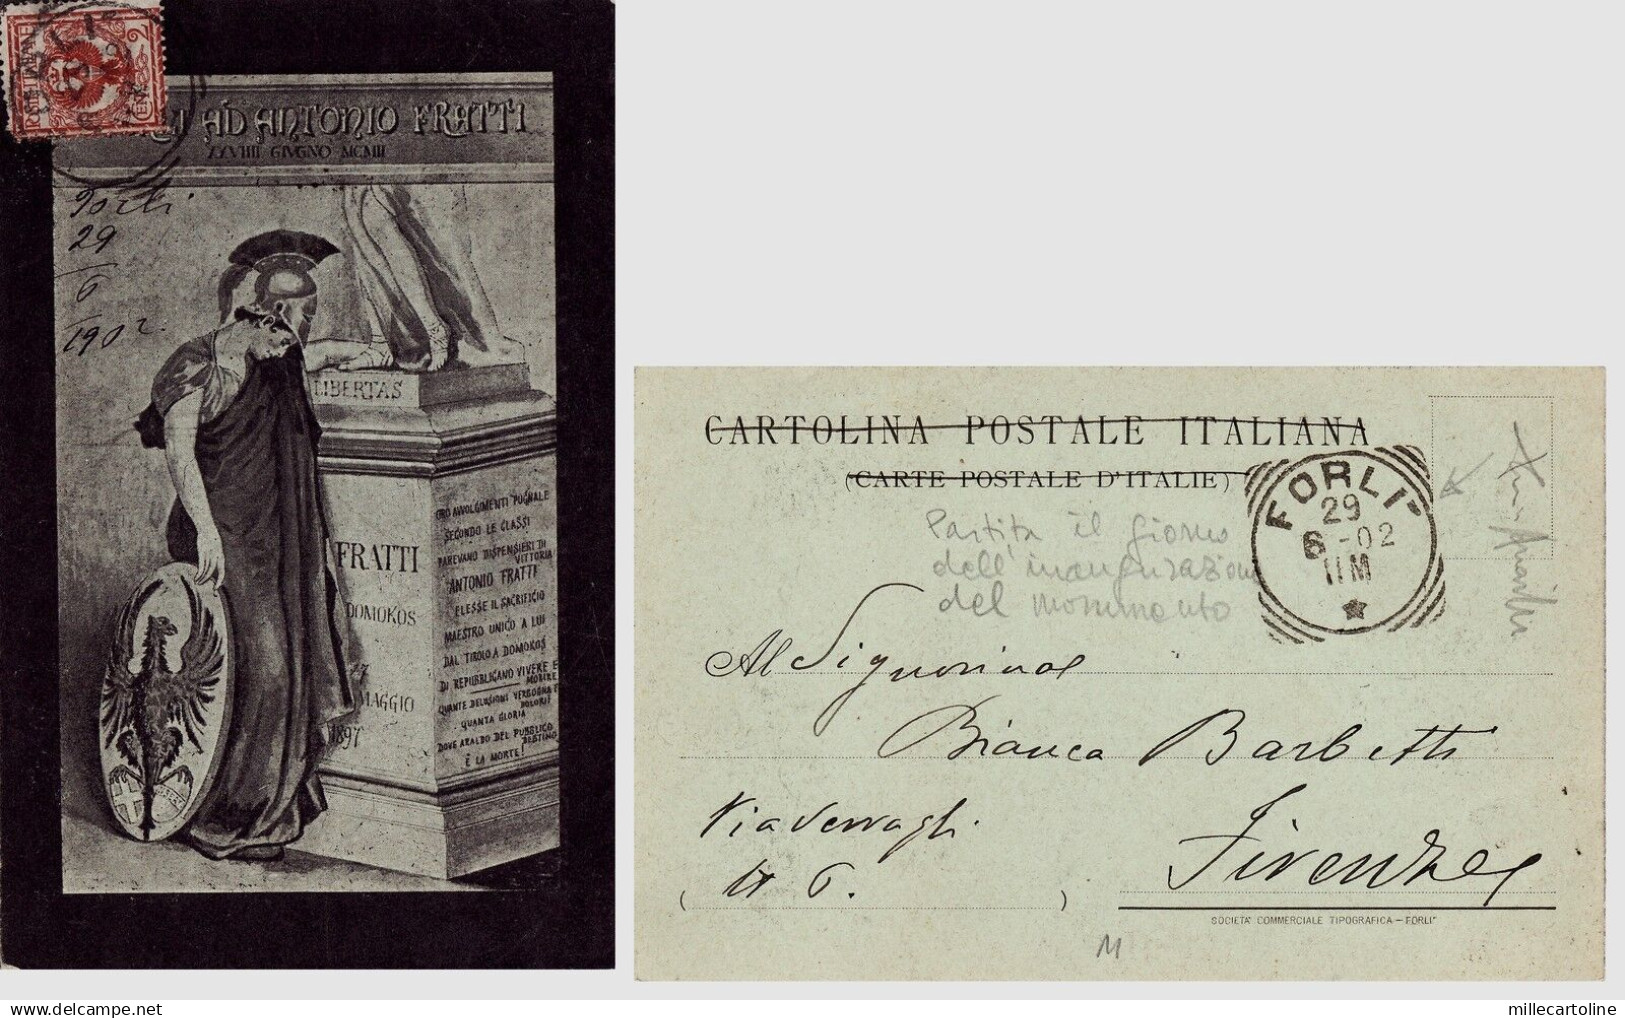 POSTE ITALIANE
CENT. 2
AD ANTONIO FRATTI
XXVIIII GIUGNO MCMII
Forlì
29
6
1902.
LIBERTAS
FRATTI
DOMOKOS
17
MAGGIO
1897
AVVOLGIMENTI PUGNALE
SECONDO LE CLASSI
PAREVANO DISPENSIERI DI
VITTORIA
ANTONIO FRATTI
ELESSE IL SACRIFICIO
MAESTRO UNICO A LUI
DAL TIROLO A DOMOKOS
DI REPUBBLICANO VIVERE E
MORIRE
QUANTE DELUSIONI VERGOGNA E
DOLORI!
QUANTA GLORIA
DOVE ARALDO DEL PUBBLICO
DESTINO
È LA MORTE!
CARTOLINA POSTALE ITALIANA
(CARTE POSTALE D'ITALIE)
FORLI'
29
6-02
11M
Partita il giorno
dell'inaugurazione
del monumento
Al Signorina
Bianca Barbetti
Via Serragli.
N 6.
Firenze
SOCIETA' COMMERCIALE TIPOGRAFICA - FORLI'
M
millecartoline